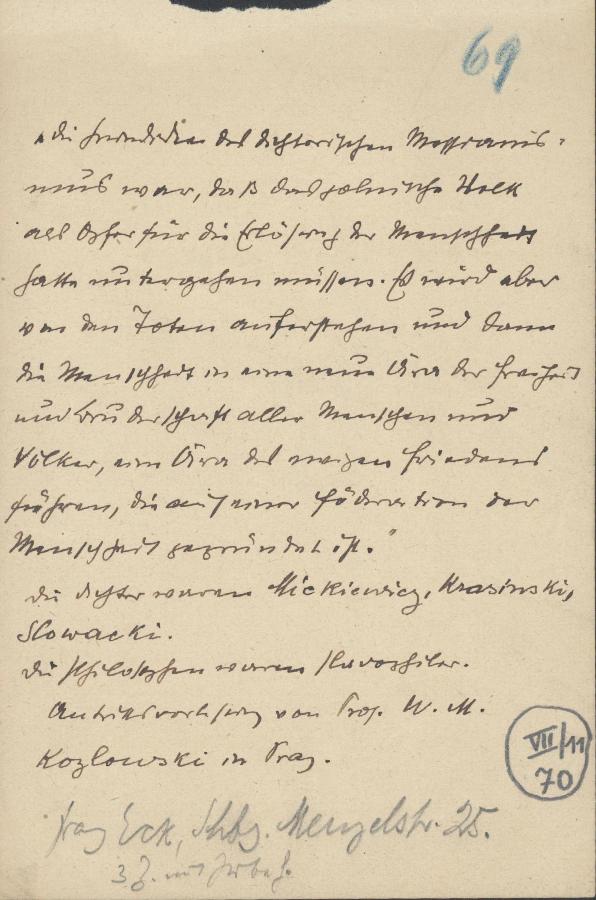 69
„Die Grundidee des dichterischen Messianis-
mus war, daß das polnische Volk
als Opfer für die Erlösung der Menschheit
hatte untergehen müssen. Es wird aber
von den Toten auferstehen und dann
die Menschheit in eine neue Ära der Freiheit
und Bruderschaft aller Menschen und
Völker, eine Ära des ewigen Friedens
führen, die auf einer Föderation der
Menschheit gegründet ist."
Die Dichter waren Mickiewicz, Krasinski,
Slowacki.
Die Philosophen waren slavophiler.
Antrittsvorlesung von Prof. W. M.
Kozlowski in Prag.
VII/11
70
Eck, Schbg. Menzelstr. 25.
3 Z. mit